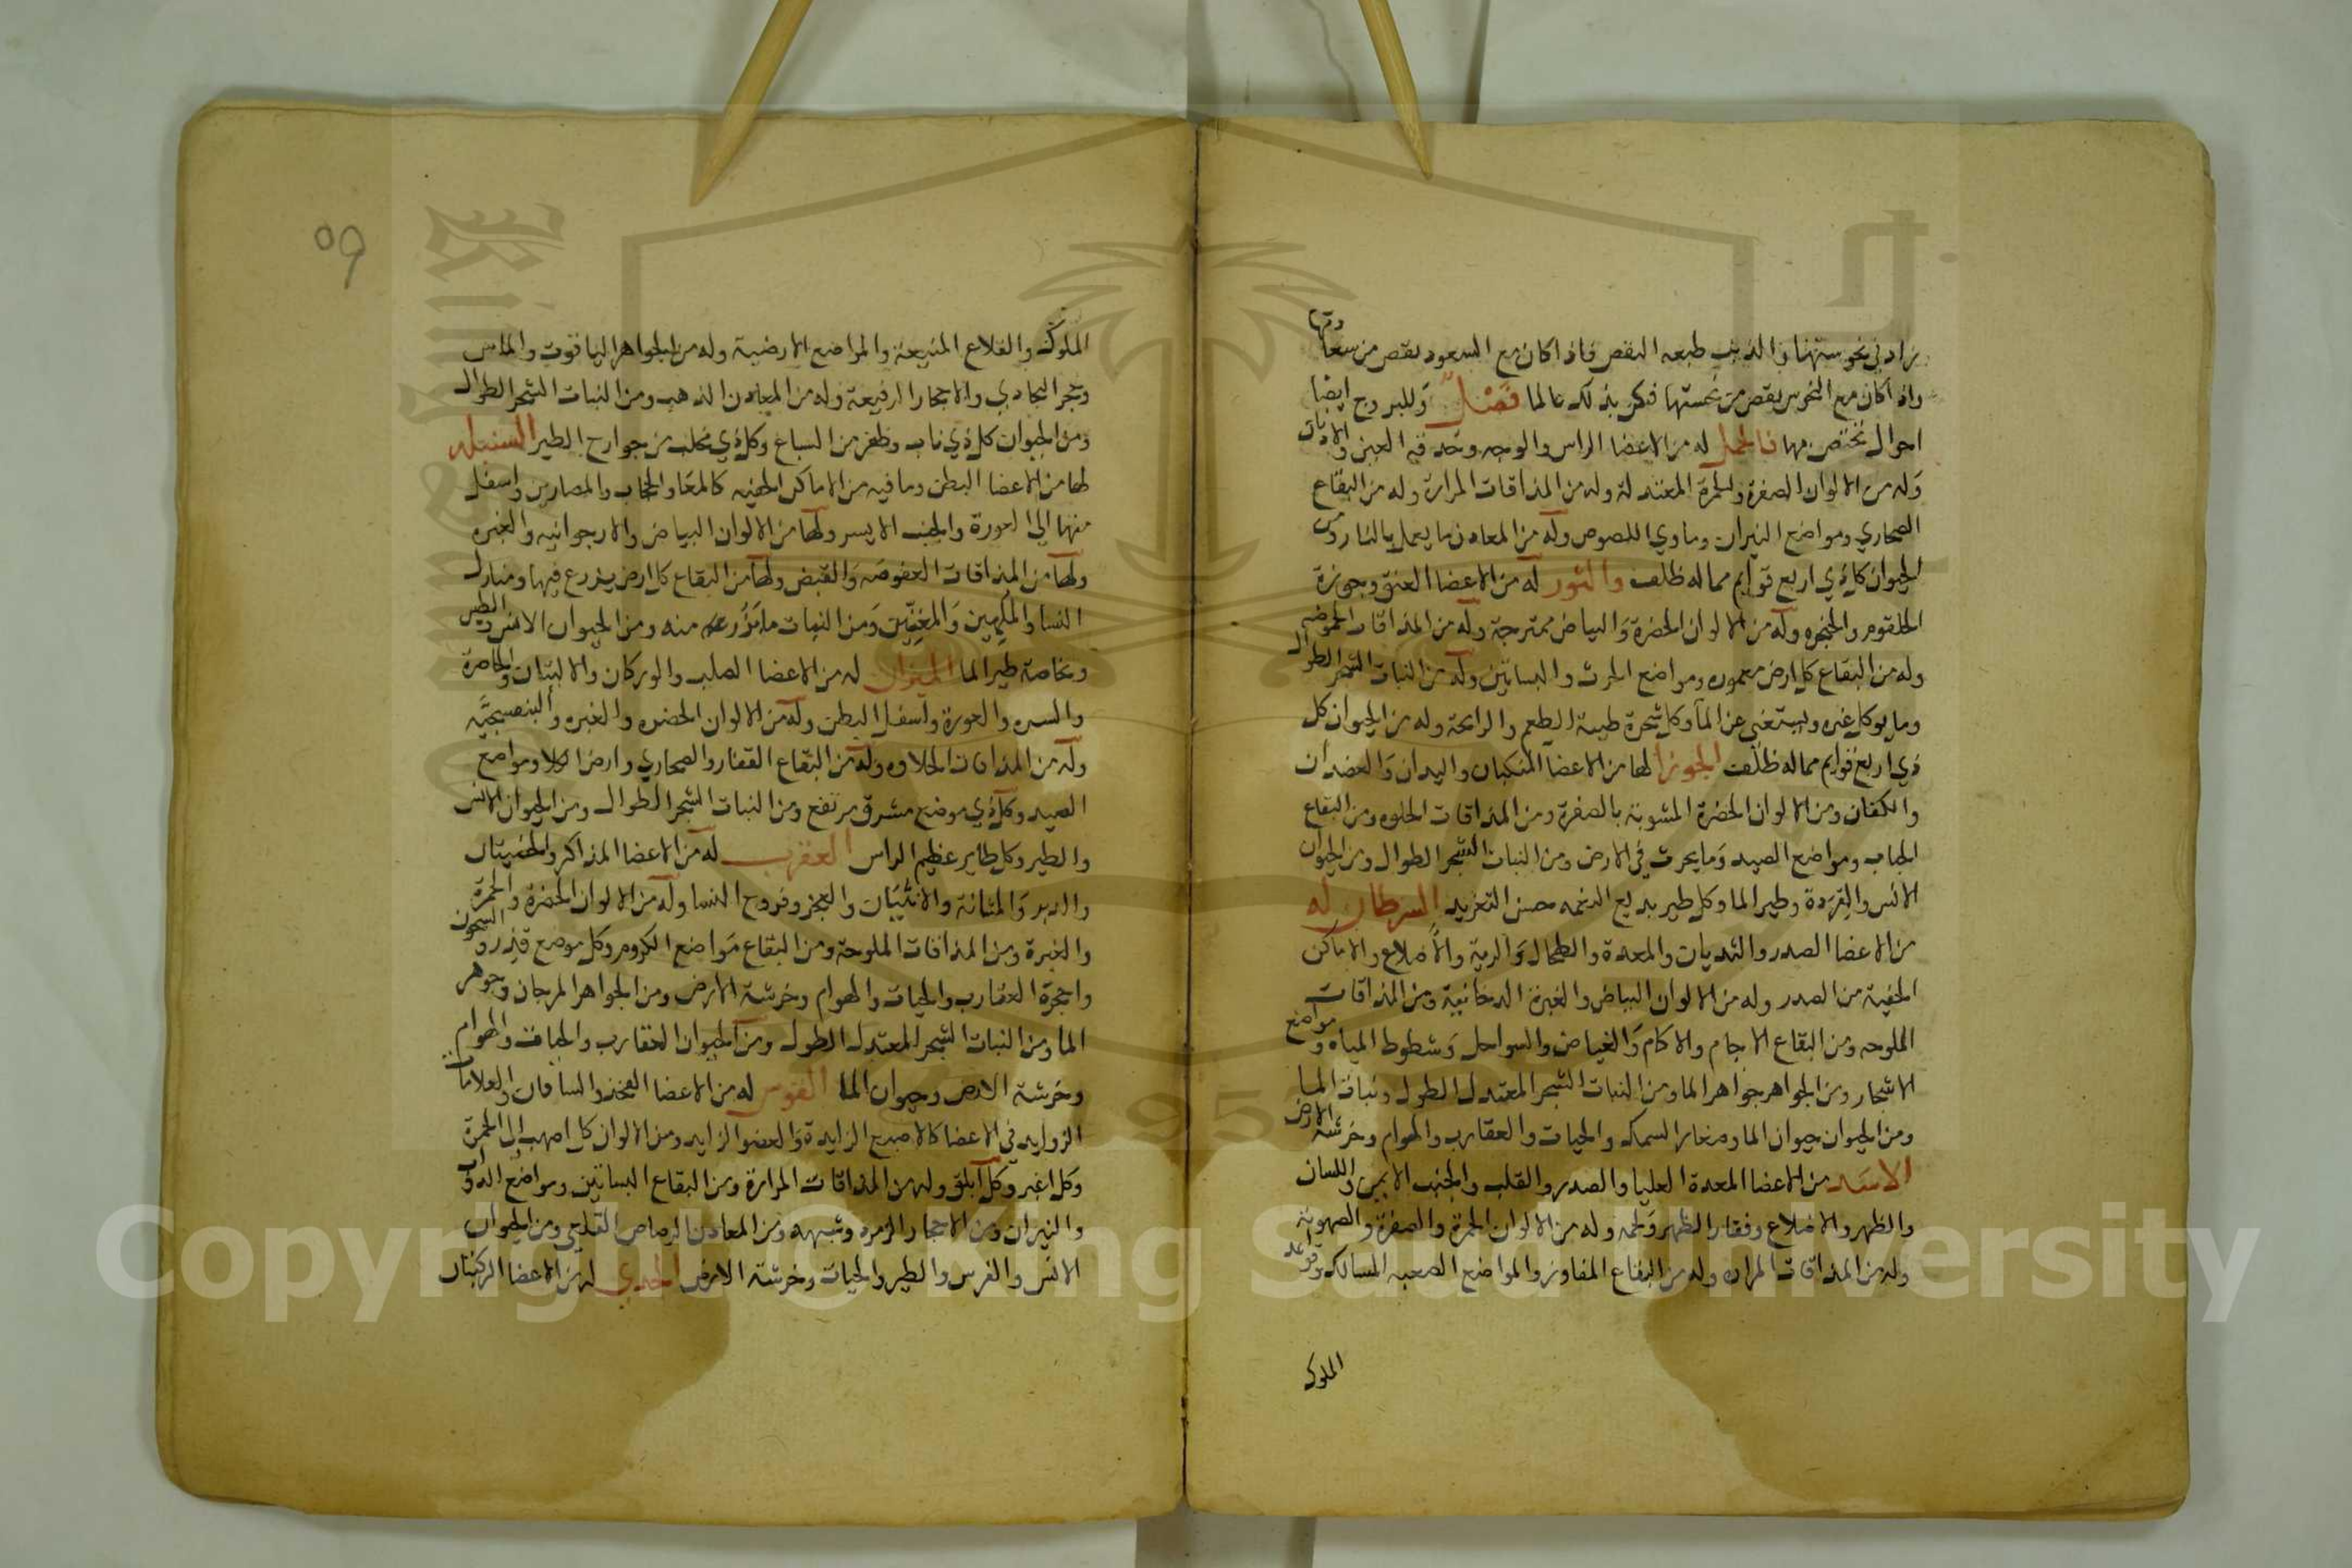 زاد في نحوستهما والذنب طبعه النقص فاذا كان مع السعود نقص من سعا
دتها
واذا كان مع النحوس نقص من نحستها فكن بذلك عالما فصل وللبروج ايضا
احوال تختص بها فالحمل له من الاعضا الراس والوجه وحدقة العين والاذنان
وله من الالوان الصفرة والحمرة المعتدلة وله من المذاقات المرارة وله من البقاع
الصحاري ومواضع النيران وماوي اللصوص وله من المعادن ما يعمل بالنار ومن
الحيوان كل ذي اربع قوايم مما له ظلف والثور له من الاعضا العنق وجوزة
الحلقوم والحنجره وله من الالوان الخضرة والبياض ممتزجة وله من المذاقات الحموضه
وله من البقاع كل ارض معموره ومواضع الحرث والبساتين وله من النبات الشجر الطوال
وما يوكل غيره ويستغني عن الماء وكل شجرة طيبة الطعم والرائحة وله من الحيوان كل
ذي اربع قوايم مما له ظلف الجوزا لها من الاعضا المنكبان واليدان والعضدان
والكفان ومن الالوان الخضرة المشوبة بالصفرة ومن المذاقات الحلوه ومن البقاع
الجبال ومواضع الصيد وما يحرث في الارض ومن النبات الشجر الطوال ومن الحيوان
الانس والقردة وطير الما وكل طير بديع النغمه حسن التغريد السرطان له
من الاعضا الصدر والثديان والمعدة والطحال والرية والاضلاع والاماكن
الخفية من الصدر وله من الالوان البياض والغبرة الدخانية ومن المذاقات
الملوحه ومن البقاع الاجام والاكام والغياض والسواحل وشطوط المياه ومواضع
الاشجار ومن الجواهر جواهر الما ومن النبات الشجر المعتدل الطول ونبات الما
ومن الحيوان حيوان الما وصغار السمك والحيات والعقارب والهوام وخرشة الارض
الاسد من الاعضا المعدة العليا والصدر والقلب والجنب الايمن واللسان
والظهر والاضلاع وفقار الظهر ولحمه وله من الالوان الحمرة والصفرة والصهوبة
وله من المذاقات المراره وله من البقاع المفاوز والمواضع الصعبه المسالك وقواعد
الملوك
09
الملوك والقلاع المنيعة والمواضع الارضية وله من الجواهر الياقوت والماس
وحجر البجادي والاحجار الرفيعة وله من المعادن الذهب ومن النبات الشجر الطوال
ومن الحيوان كل ذي ناب وظفر من السباع وكل ذي مخلب من جوارح الطير السنبله
لها من الاعضا البطن وما فيه من الاماكن الخفيه كالمعا والحجاب والمصارين واسفل
منها الي العورة والجنب الايسر ولها من الالوان البياض والارجوانيه والغبره
ولها من المذاقات العفوصه والقبض ولها من البقاع كل ارض يزرع فيها ومنازل
النسا والملهين والمغنيين ومن النبات ما يزرع منه ومن الحيوان الانس والطير
وخاصة طير الما الميزان له من الاعضا الصلب والوركان والاليتان والخاصرة
والسره والعورة واسفل البطن وله من الالوان الخضره والغبره والبنفسجيه
وله من المذاقات الحلاوه وله من البقاع القفار والصحاري وارض الكلا ومواضع
الصيد وكل ذي موضع مشرق مرتفع ومن النبات الشجر الطوال ومن الحيوان الانس
والطير وكل طاير عظيم الراس العقرب له من الاعضا المذاكر والخصيتان
والدبر والمثانة والانثيان والعجز وفروج النسا وله من الالوان الخضرة والحمرة
والغبرة ومن المذاقات الملوحة ومن البقاع مواضع الكروم وكل موضع قذر والسجون
واحجرة العقارب والحيات والهوام وخرشة الارض ومن الجواهر المرجان وجوهر
الما ومن النبات الشجر المعتدل الطول ومن الحيوان العقارب والحيات والهوام
وخرشة الارض وحيوان الما القوس له من الاعضا الفخذ والساقان والعلامات
الزوايد في الاعضا كالاصبع الزايدة والعضو الزايد ومن الالوان كل اصهب الى الحمرة
وكل اغبر وكل ابلق وله من المذاقات المرارة ومن البقاع البساتين ومواضع الدواب
والنيران ومن الاحجار الزمرد وشبهه ومن المعادن الرصاص القلعي ومن الحيوان
الانس والفرس والطير والحيات وخرشة الارض الجدي له من الاعضا الركبتان
Copyright © King Saud University